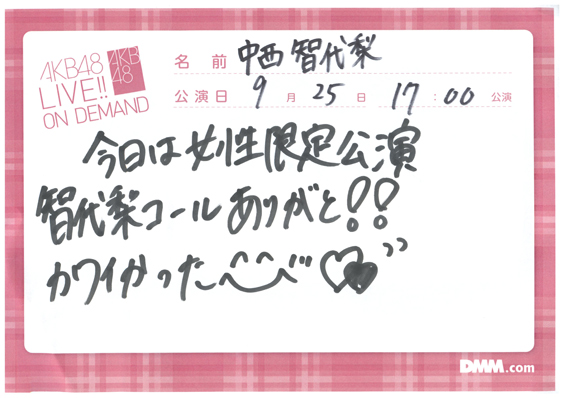 AKB48
LIVE!!
ON DEMAND
AKB
48
名前 中西智代梨
公演日 9月25日 17:00公演
今日は女性限定公演
智代梨コールありがと!!
カワイかった
DMM.com